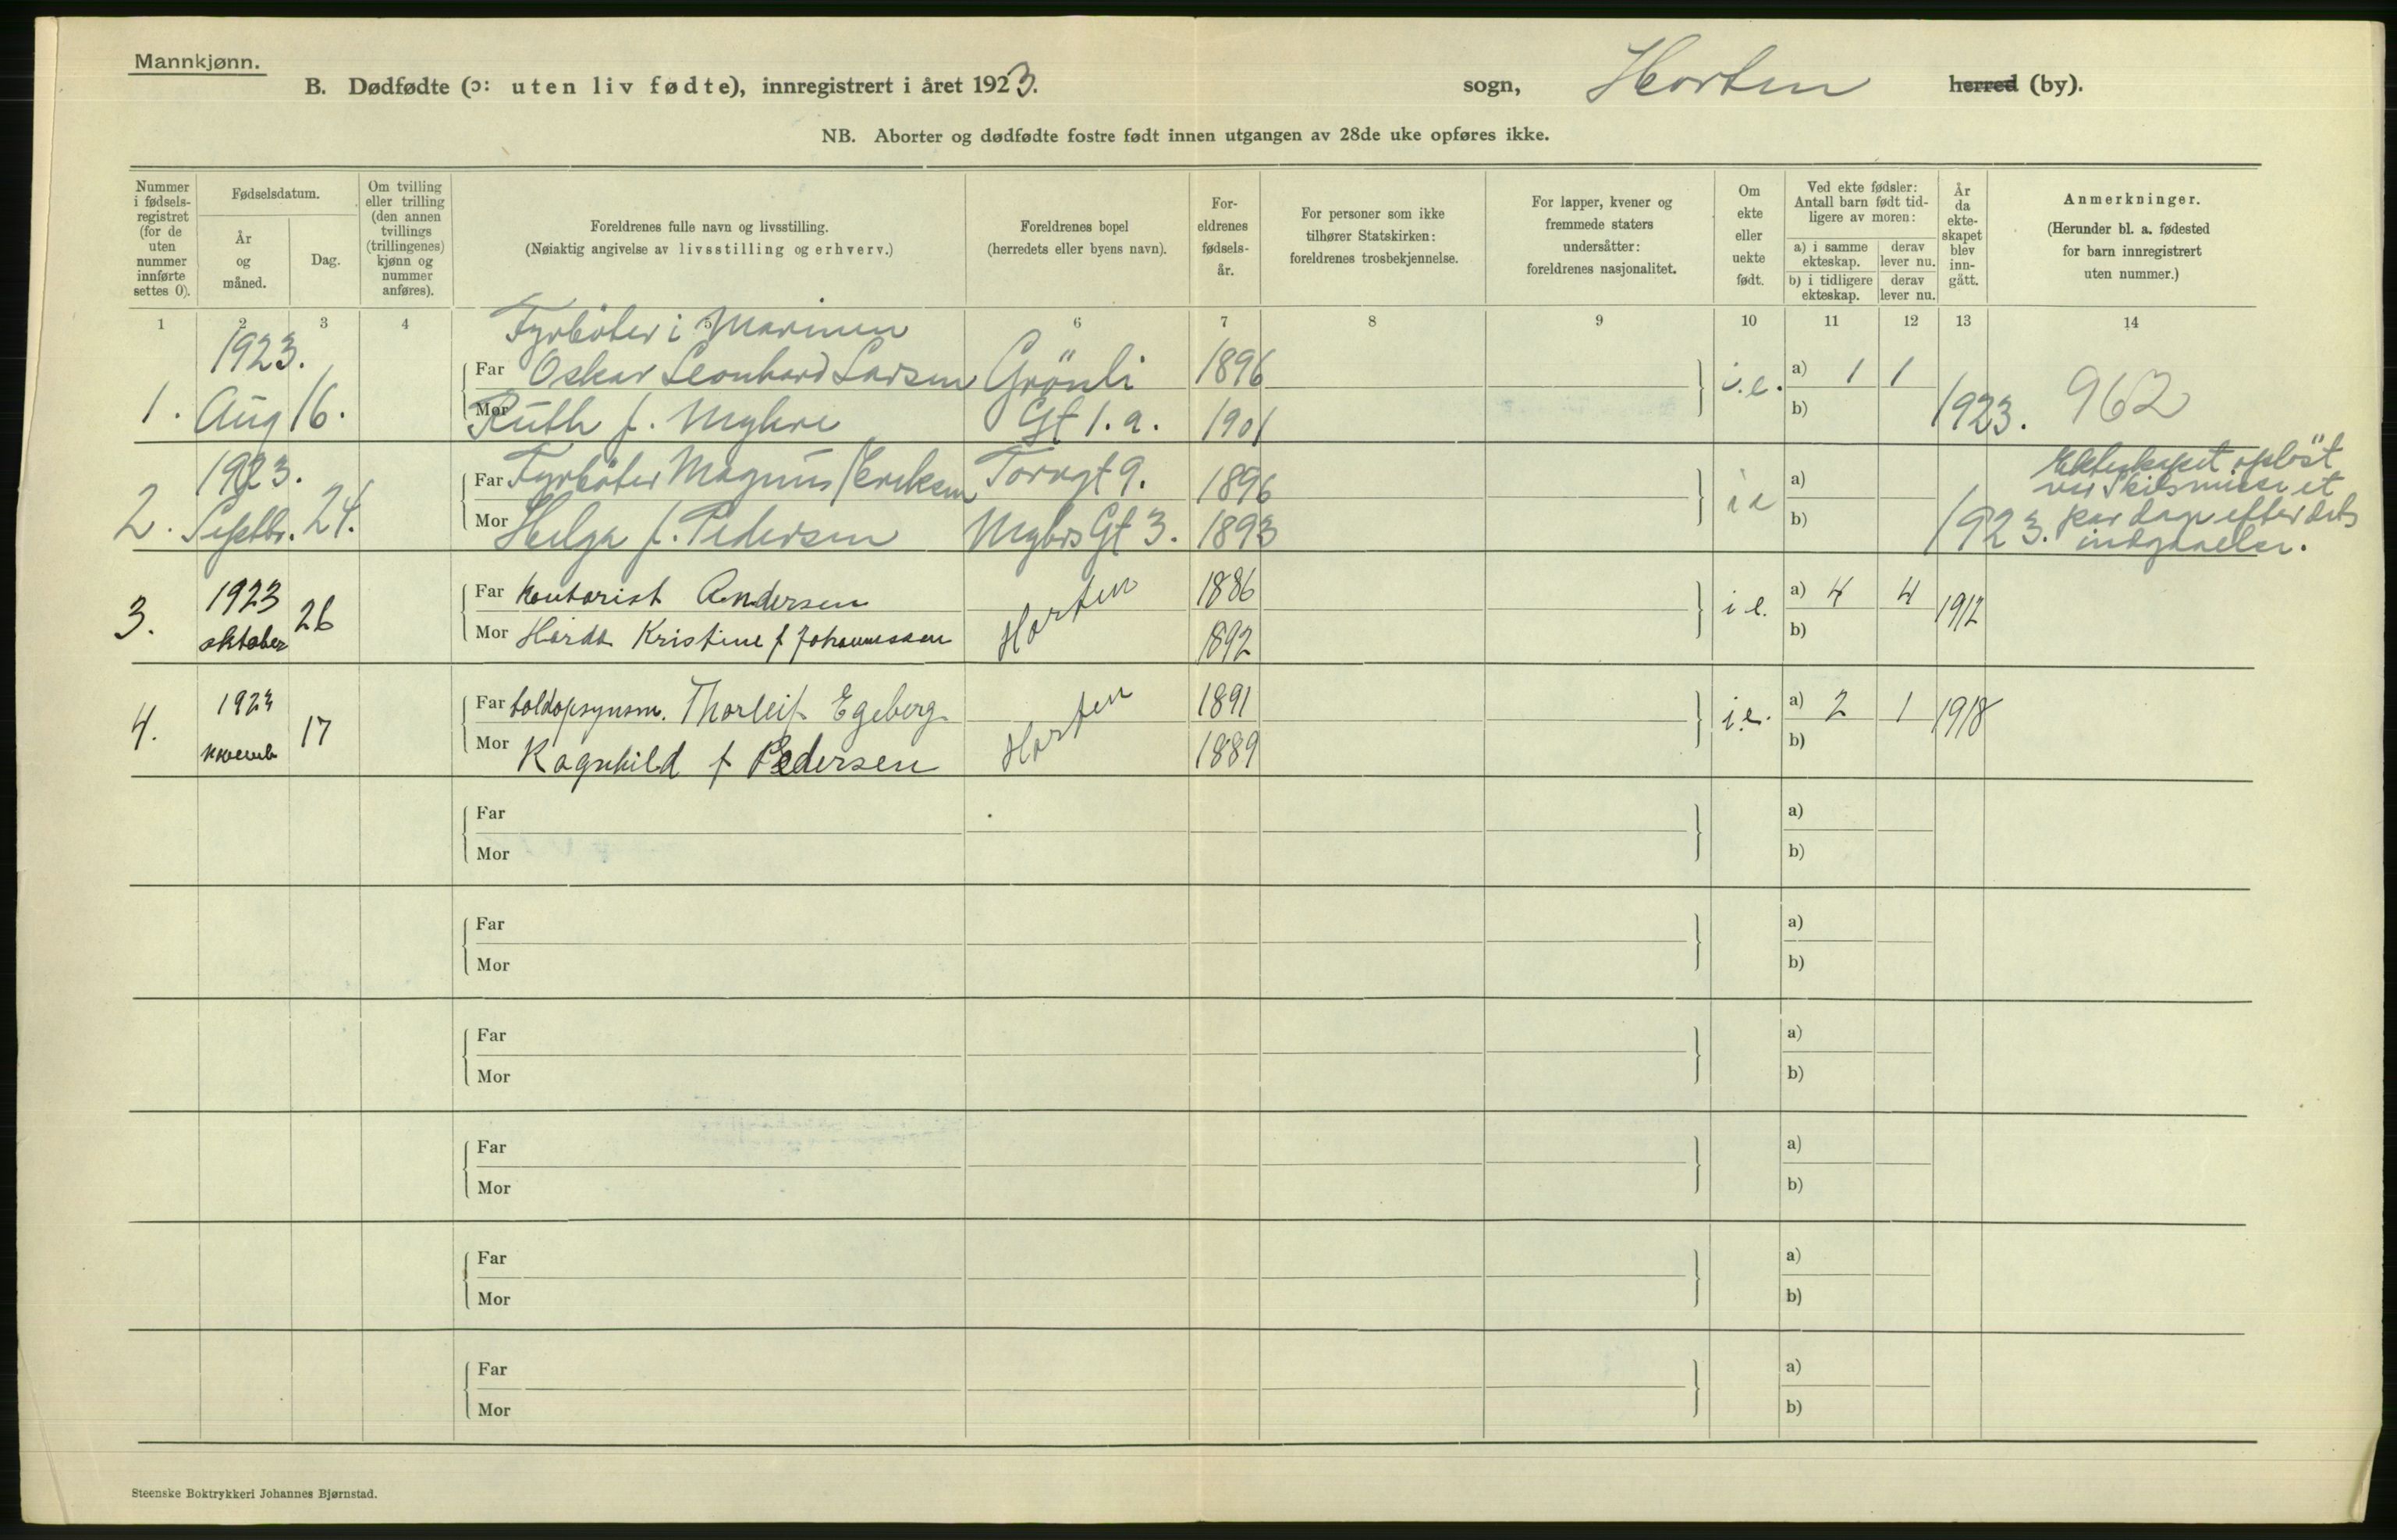 Mannkjønn.
B. Dødfødte (ɔ: uten liv fødte), innregistrert i året 1923. sogn, Horten herred (by).
NB. Aborter og dødfødte fostre født innen utgangen av 28de uke opføres ikke.
Nummer i fødsels-registret (for de uten nummer innførte settes 0).
Fødselsdatum.
År og måned.
Dag.
Om tvilling eller trilling (den annen tvillings (trillingenes) kjønn og nummer anføres).
Foreldrenes fulle navn og livsstilling.
(Nøiaktig angivelse av livsstilling og erhverv.)
Foreldrenes bopel
(herredets eller byens navn).
For-eldrenes fødsels-år.
For personer som ikke tilhører Statskirken: foreldrenes trosbekjennelse.
For lapper, kvener og fremmede staters undersåtter: foreldrenes nasjonalitet.
Om ekte eller uekte født.
Ved ekte fødsler: Antall barn født tid-ligere av moren:
a) i samme ekteskap.
derav lever nu.
b) i tidligere ekteskap.
derav lever nu.
År da ekte-skapet blev inn-gått.
Anmerkninger.
(Herunder bl. a. fødested for barn innregistrert uten nummer.)
1 2 3 4 5 6 7 8 9 10 11 12 13 14
Fyrböter i Marinen
1923. Far Oskar Leonhard Larsen Grönli 1896 i.e. a) 1 1
1. Aug 16. Mor Ruth f. Myhre Gt 1.a. 1901 b) 1923. 962
1923. Far Fyrböter Magnus Eriksen Torvgt 9. 1896 i e a)
2. Septbr. 24. Mor Helga f. Pedersen Gt 3. 1893 b) 1923.
Ekteskapet opløst
ved Skilsmisse et
par dage efter dets
indgaaelse.
1923 Far Kontorist Andersen Horten 1886 i e. a) 4 4 1912
3. oktober 26 Mor Kristine f Johannessen 1892 b)
1923 Far toldopsynsm. Thorleif Egeberg Horten 1891 i.e. a) 2 1 1918
4. novemb 17 Mor Ragnhild f Pedersen 1889 b)
Far a)
Mor b)
Far a)
Mor b)
Far a)
Mor b)
Far a)
Mor b)
Far a)
Mor b)
Far a)
Mor b)
Steenske Boktrykkeri Johannes Bjørnstad.